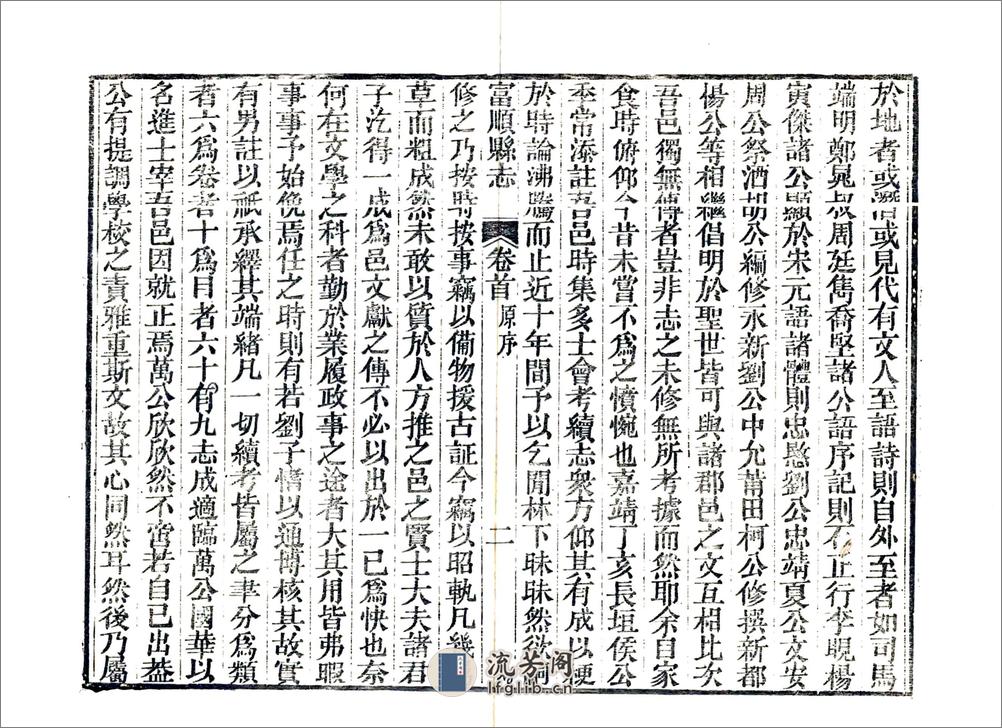 於地者或潛或見代有文人至語詩則自外至者如司馬
端明鄭晃叔周廷雋裔堅諸公語序記則有止行李晛楊
寅傑諸公顯於宋元語諸體則忠愍劉公忠靖夏公文安
周公祭酒胡公編修永新劉公中允莆田柯公修撰新都
楊公等相繼倡明於聖世皆可與諸郡邑之文互相比次
吾邑獨無傳者豈非志之未修無所考據而然耶余自家
食時俯仰今昔未嘗不為之憤惋也嘉靖丁亥長垣侯公
季常添註吾邑時集多士會考續志衆方仰其有成以梗
於時論沸騰而止近十年間予以乞閒林下昧昧然欲
富順縣志 卷首 原序 二
修之乃按時按事竊以備物援古証今竊以昭軌凡幾
草而粗成然未敢以質於人方推之邑之賢士大夫諸君
子汔得一成為邑文獻之傳不必以出於一已為快也奈
何在文學之科者勤於業履政事之途者大其用皆弗暇
事事予始俛焉任之時則有若劉子愔以通博核其故實
有男註以祇承繹其端緒凡一切續考皆屬之聿分為類
者六為卷者十為目者六十有九志成適臨萬公國華以
名進士宰吾邑因就止焉萬公欣欣然不啻若自已出葢
公有提調學校之責雅重斯文故其心同然耳然後乃屬
流芳閣
lfglib.cn